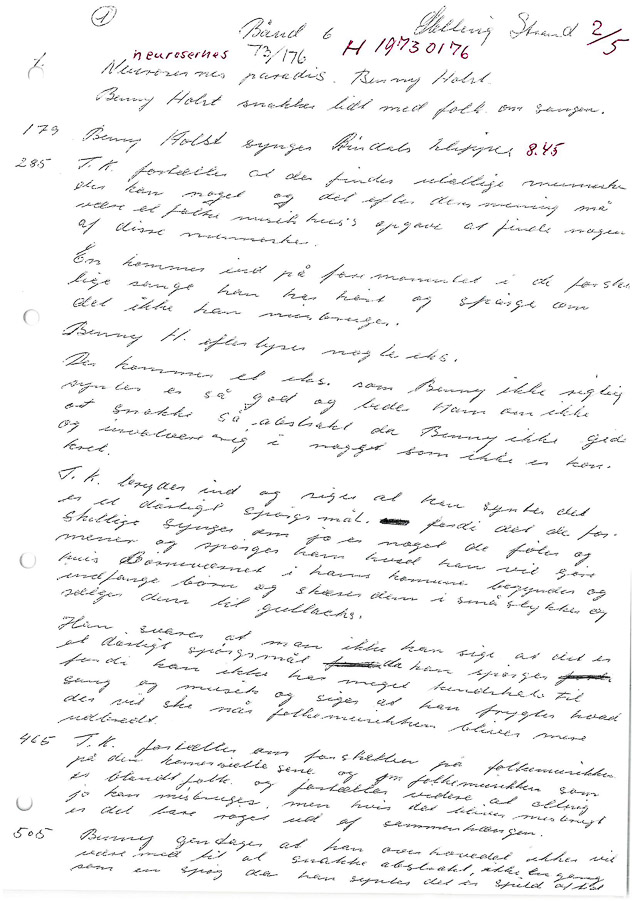 1
Bånd 6 Hellevig Strand 2/5
neurosernes 73/176 H 19730176
1. Neurosernes paradis. Benny Holst.
Benny Holst snakker lidt med folk om sangen.
179 Benny Holst synger Rindals klipper 8.45
285 T.K. fortæller at der findes utallige mennesker
der kan noget og det efter dem mening må
være et folkemusikhus's opgave at finde nogen
af disse mennesker.
En kommer ind på fore momentet i de forskel
lige sange han har hørt og spørge om
det ikke kan misbruges.
Benny H. efterlyser nogle eks.
Der kommer et eks. som Benny ikke rigtig
syntes er så god og beder ham om ikke
at snakke så abstrakt da Benny ikke gider
og involvere sig i noget som ikke er kon-
kret.
T.K. bryder ind og siger at han syntes det
er et dårligt spørgsmål. fordi det de for-
skellige synger om jo er noget de føler og
mener og spørger ham hvad han vil gøre
hvis Børneværnet i hans kommune begynder og
indfange børn og skærer dem i småstykker og
sælger dem til gullasch.
Han svarer at man ikke kan sige at det er
et dårligt spørgsmål da han spørger
fordi han ikke har meget kendskab til
sang og musik og siger at han frygter hvad
der vil ske når folkemusikken bliver mere
udbredt.
465 T.K. fortæller om forskellen på folkemusikken
på den komercielle scene og på folkemusikken som
er blandt folk og fortæller videre at alting
jo kan misbruges, men hvis det bliver misbrugt
er det bare taget ud af sammenhængen.
505 Benny gentager at han overhovedet ikke vil
være med til at snakke abstrakt, ikke engang
som en spøg da han syntes det er spild af tid